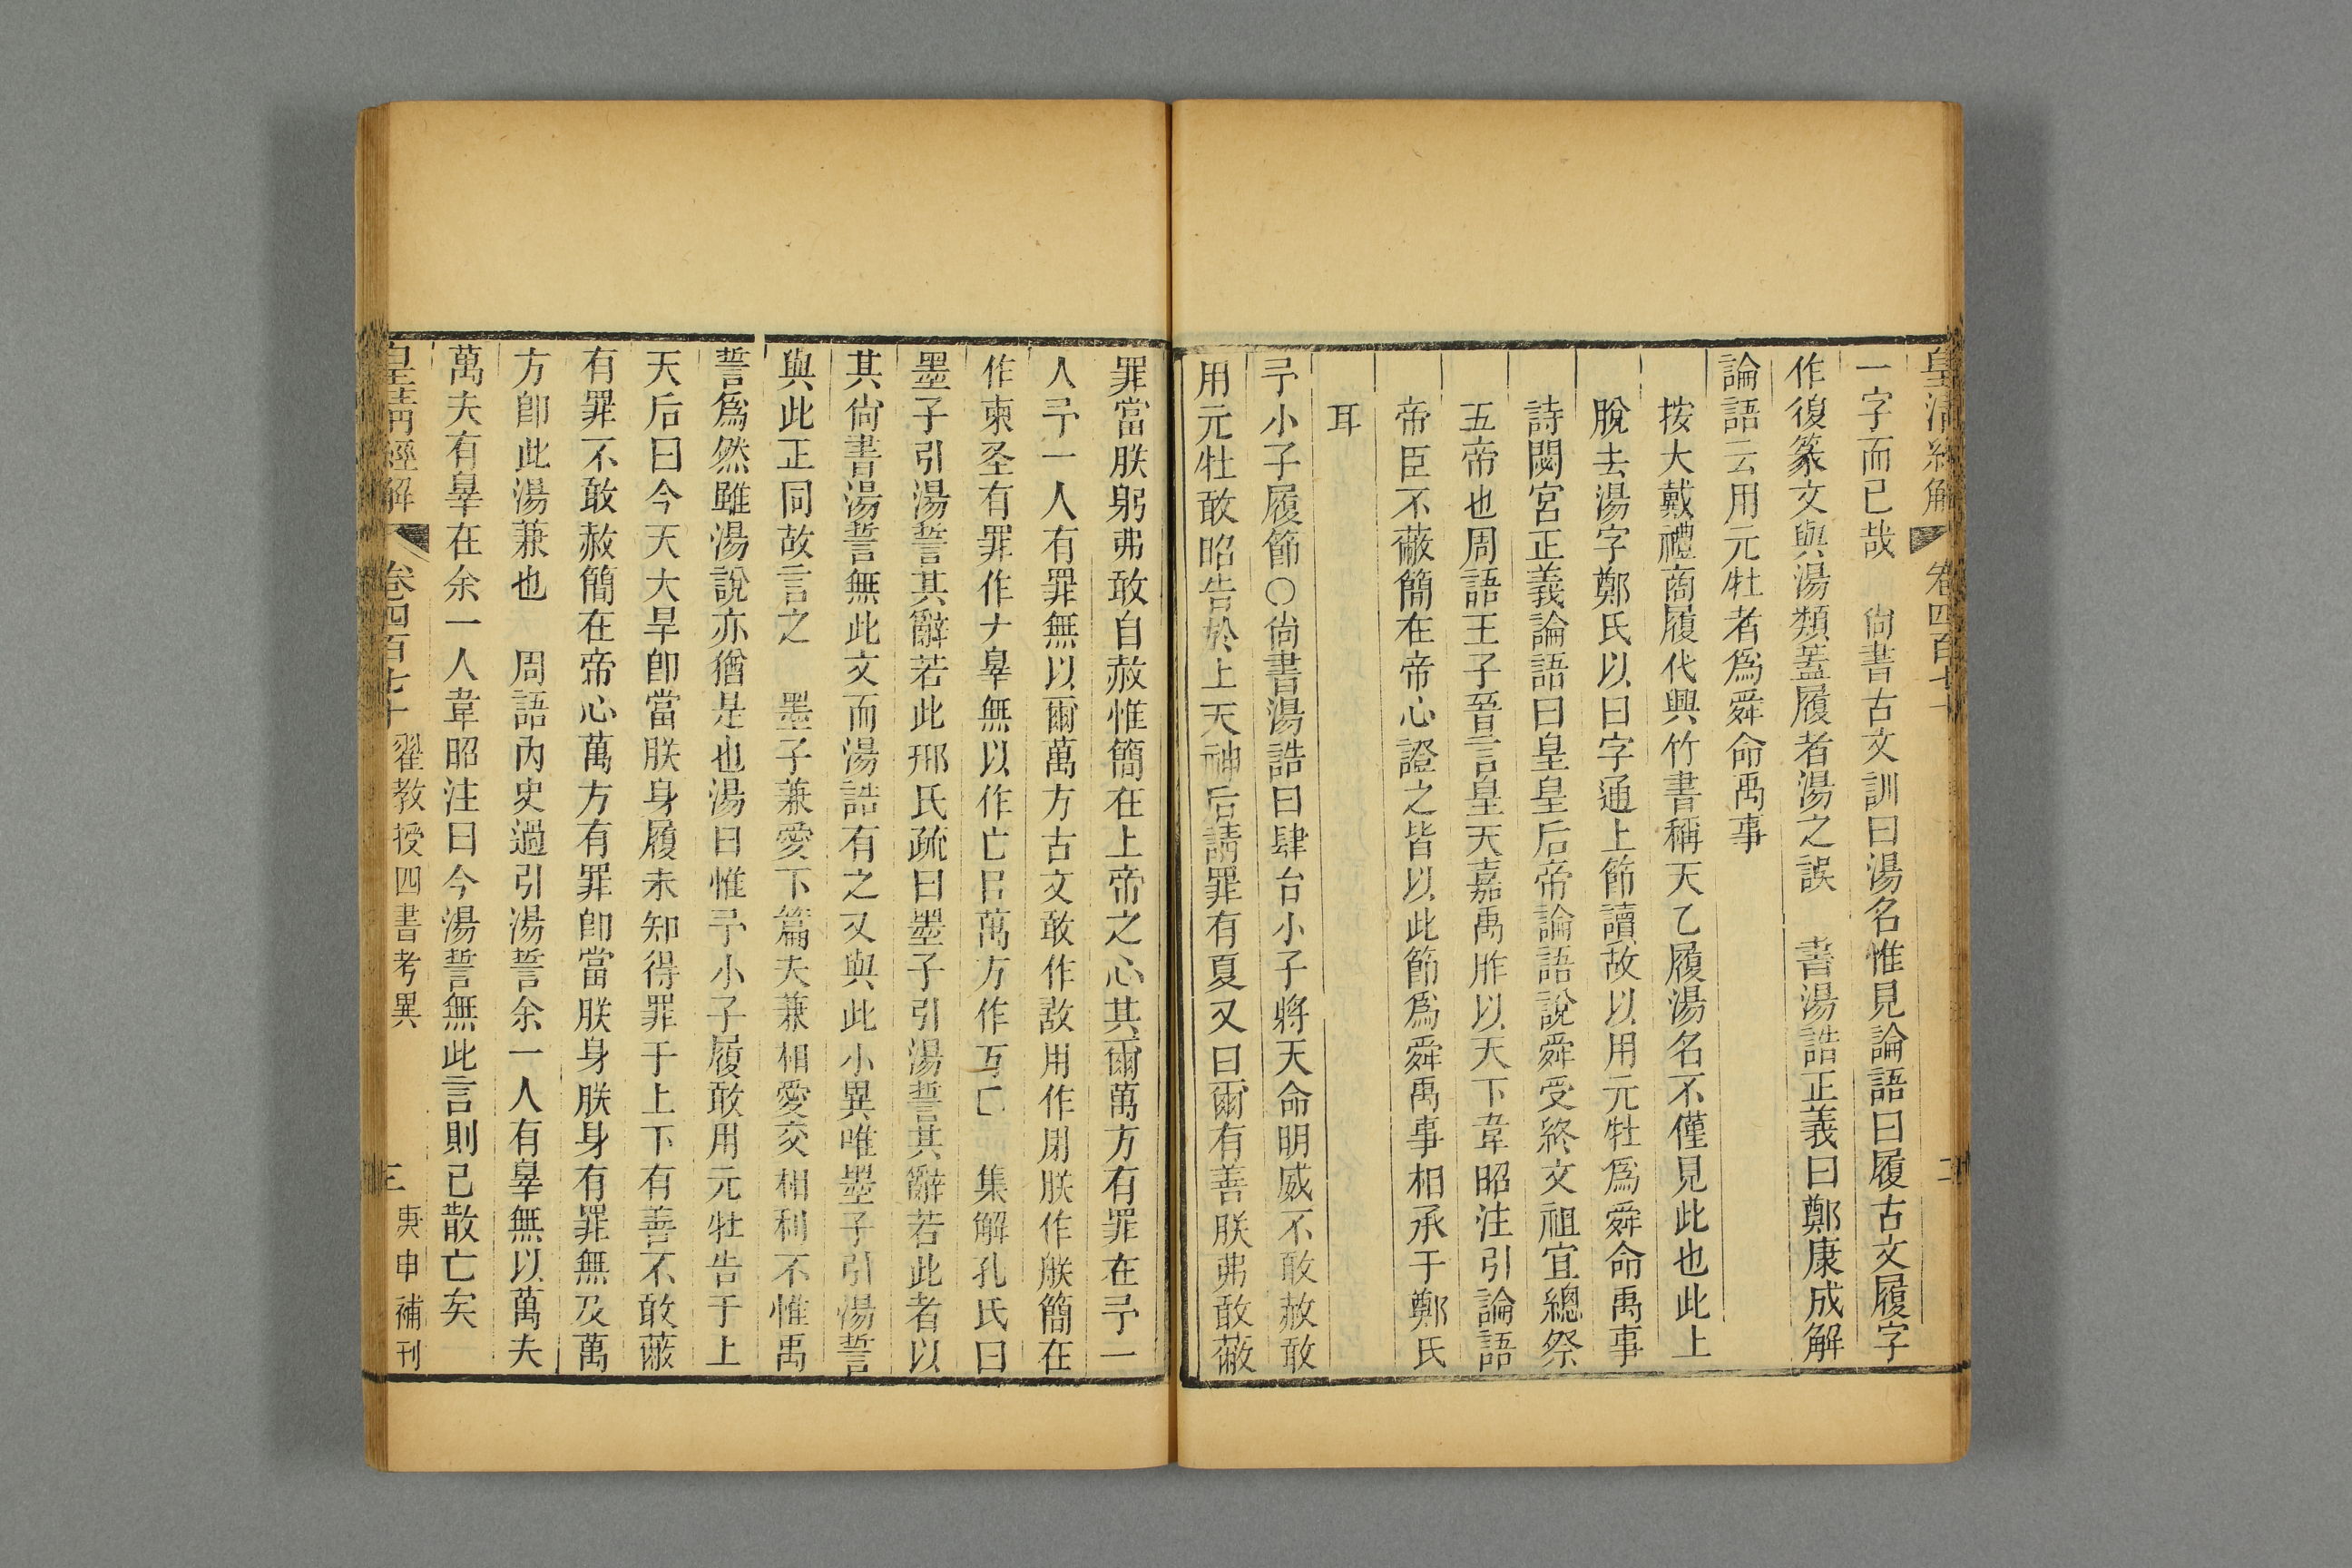 皇清經解 卷四百七十 二
一字而已哉 尙書古文訓曰湯名惟見論語曰履古文履字
作復篆文與湯類蓋履者湯之誤 書湯誥正義曰鄭康成解
論語云用元牡者爲舜命禹事
按大戴禮商履代興竹書稱天乙履湯名不僅見此也此上
脫去湯字鄭氏以曰字通上節讀故以用元牡爲舜命禹事
詩閟宮正義論語曰皇皇后帝論語說舜受終文祖宜總祭
五帝也周語王子晉言皇天嘉禹胙以天下韋昭注引論語
帝臣不蔽簡在帝心證之皆以此節爲舜禹事相承于鄭氏
耳
予小子履節○尙書湯誥曰肆台小子將天命明威不敢赦敢
用元牡敢昭告於上天神后請罪有夏又曰爾有善朕弗敢蔽
罪當朕躬弗敢自赦惟簡在上帝之心其爾萬方有罪在予一
人予一人有罪無以爾萬方古文敢作敌用作𤰃朕作㑞簡在
作柬圣有罪作𠂇辠無以作亡㠯萬方作万匚 集解孔氏曰
墨子引湯誓其辭若此邢氏疏曰墨子引湯誓其辭若此者以
其尙書湯誓無此文而湯誥有之又與此小異唯墨子引湯誓
與此正同故言之 墨子兼愛下篇夫兼相愛交相利不惟禹
誓爲然雖湯說亦猶是也湯曰惟予小子履敢用元牡告于上
天后曰今天大旱卽當朕身履未知得罪于上下有善不敢蔽
有罪不敢赦簡在帝心萬方有罪卽當朕身朕身有罪無及萬
方卽此湯兼也 周語內史過引湯誓余一人有辠無以萬夫
萬夫有辠在余一人韋昭注曰今湯誓無此言則已散亡矣
皇淸經解 卷四百七十 翟教授四書考異 三 庚申補刊